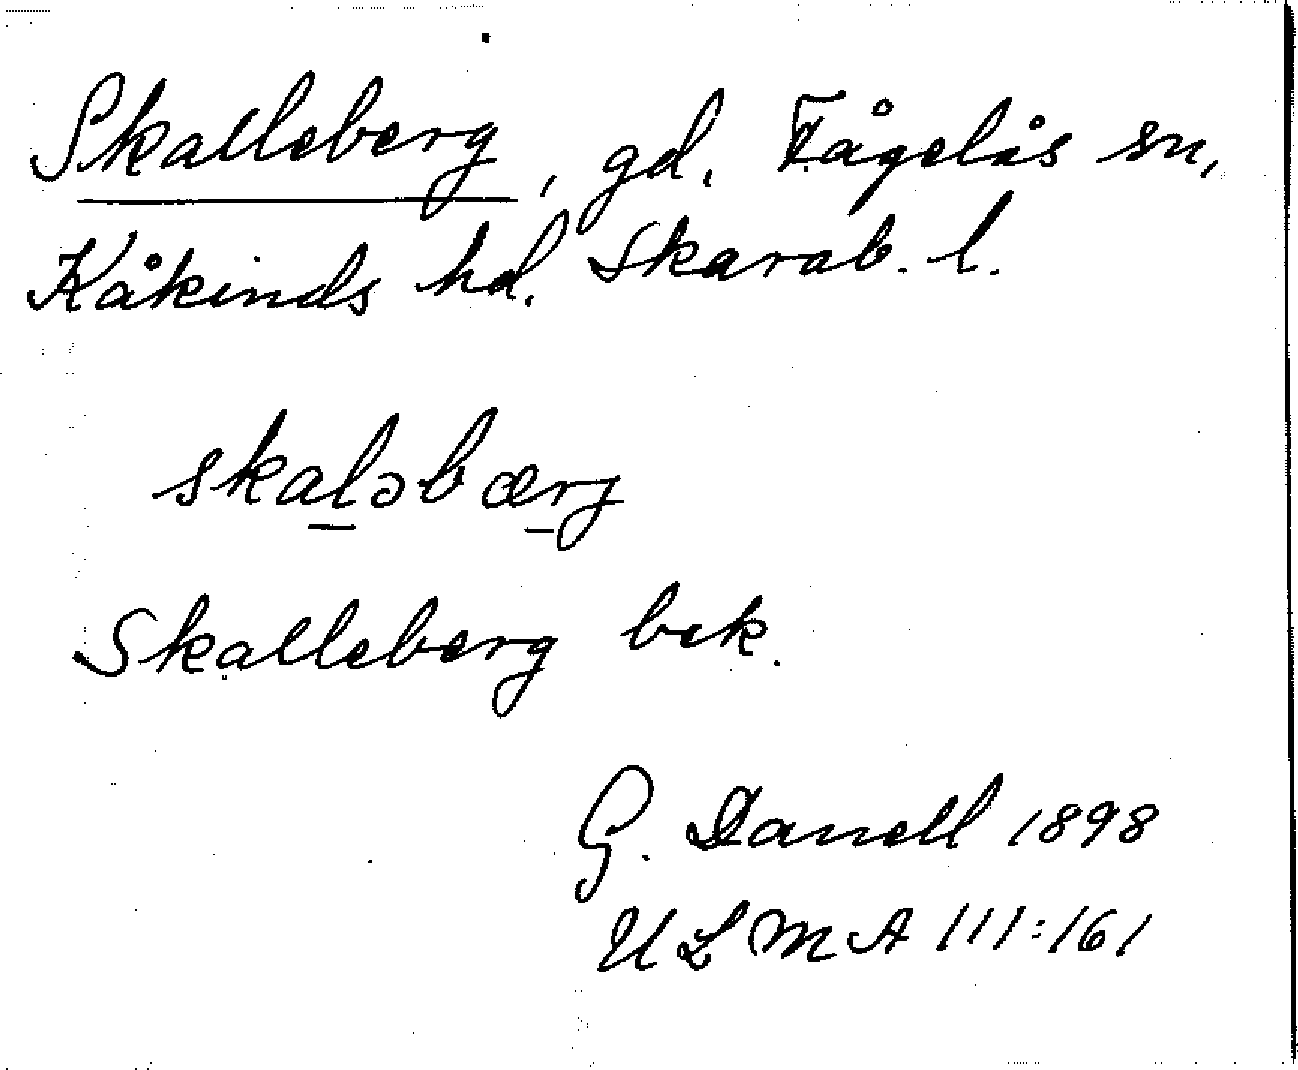 Skalleberg, gd, Fågelås sn,
Kåkinds hd. Skarab. l.
skaləbærj
Skalleberg bek.
G. Danell 1898
ULMA 111:161